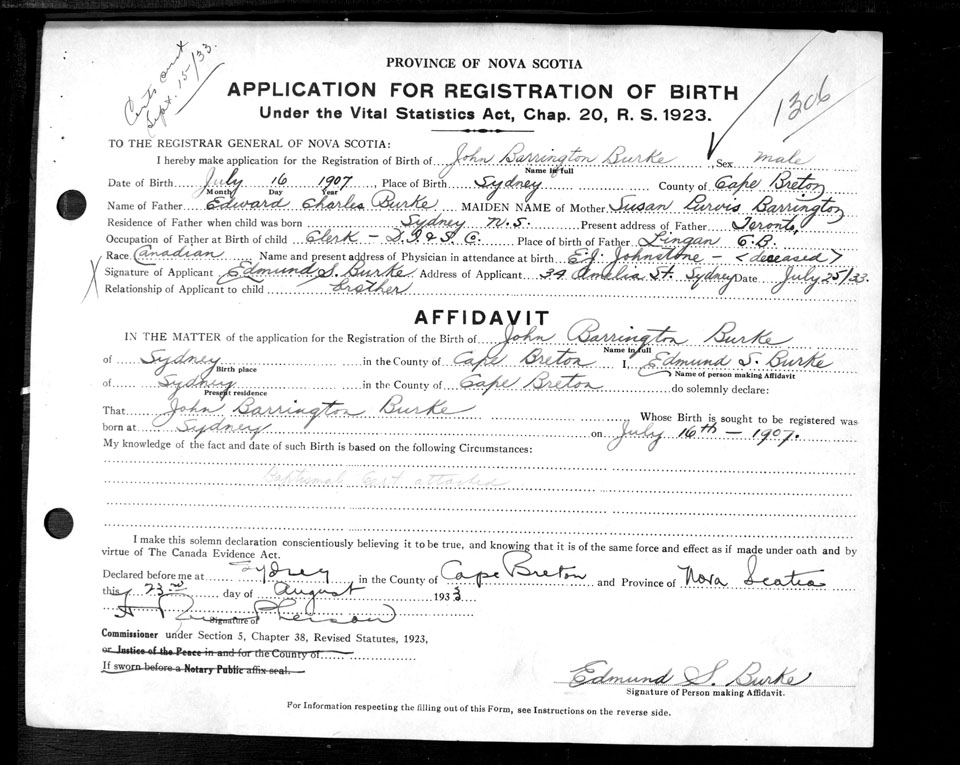 Certs out
Sept. 15/33.
PROVINCE OF NOVA SCOTIA
APPLICATION FOR REGISTRATION OF BIRTH
1306
Under the Vital Statistics Act, Chap. 20, R. S. 1923.
TO THE REGISTRAR GENERAL OF NOVA SCOTIA:
I hereby make application for the Registration of Birth of John Barrington Burke, Sex male
Name in full
Date of Birth July 16 1907, Place of Birth Sydney County of Cape Breton
Month Day Year
Name of Father Edward Charles Burke MAIDEN NAME of Mother Susan Purvis Barrington
Residence of Father when child was born Sydney N.S. Present address of Father Toronto,
Occupation of Father at Birth of child Clerk - D.I. & S. C. Place of birth of Father Lingan C.B.
Race Canadian Name and present address of Physician in attendance at birth E.J. Johnstone - <deceased>
X Signature of Applicant Edmund S. Burke Address of Applicant 39 Amelia St. Sydney Date July 25/33.
Relationship of Applicant to child Brother
AFFIDAVIT
IN THE MATTER of the application for the Registration of the Birth of John Barrington Burke
Name in full
of Sydney in the County of Cape Breton I, Edmund S. Burke
Birth place Name of person making Affidavit
of Sydney in the County of Cape Breton do solemnly declare:
Present residence
That John Barrington Burke Whose Birth is sought to be registered was
born at Sydney on July 16th - 1907.
My knowledge of the fact and date of such Birth is based on the following Circumstances:
Baptismal Cert attached
I make this solemn declaration conscientiously believing it to be true, and knowing that it is of the same force and effect as if made under oath and by
virtue of The Canada Evidence Act.
Declared before me at Sydney in the County of Cape Breton and Province of Nova Scotia
this 23rd day of August 1933
Signature of
Commissioner under Section 5, Chapter 38, Revised Statutes, 1923,
or Justice of the Peace in and for the County of
If sworn before a Notary Public affix seal.
Edmund S. Burke
Signature of Person making Affidavit.
For Information respecting the filling out of this Form, see Instructions on the reverse side.